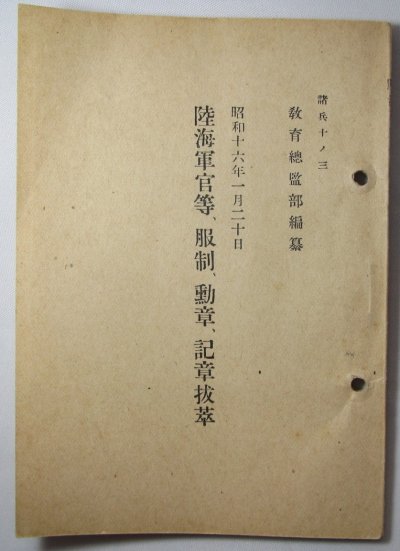 諸兵十ノ三
敎育總監部編纂
昭和十六年一月二十日
陸海軍官等、服制、勳章、記章拔萃